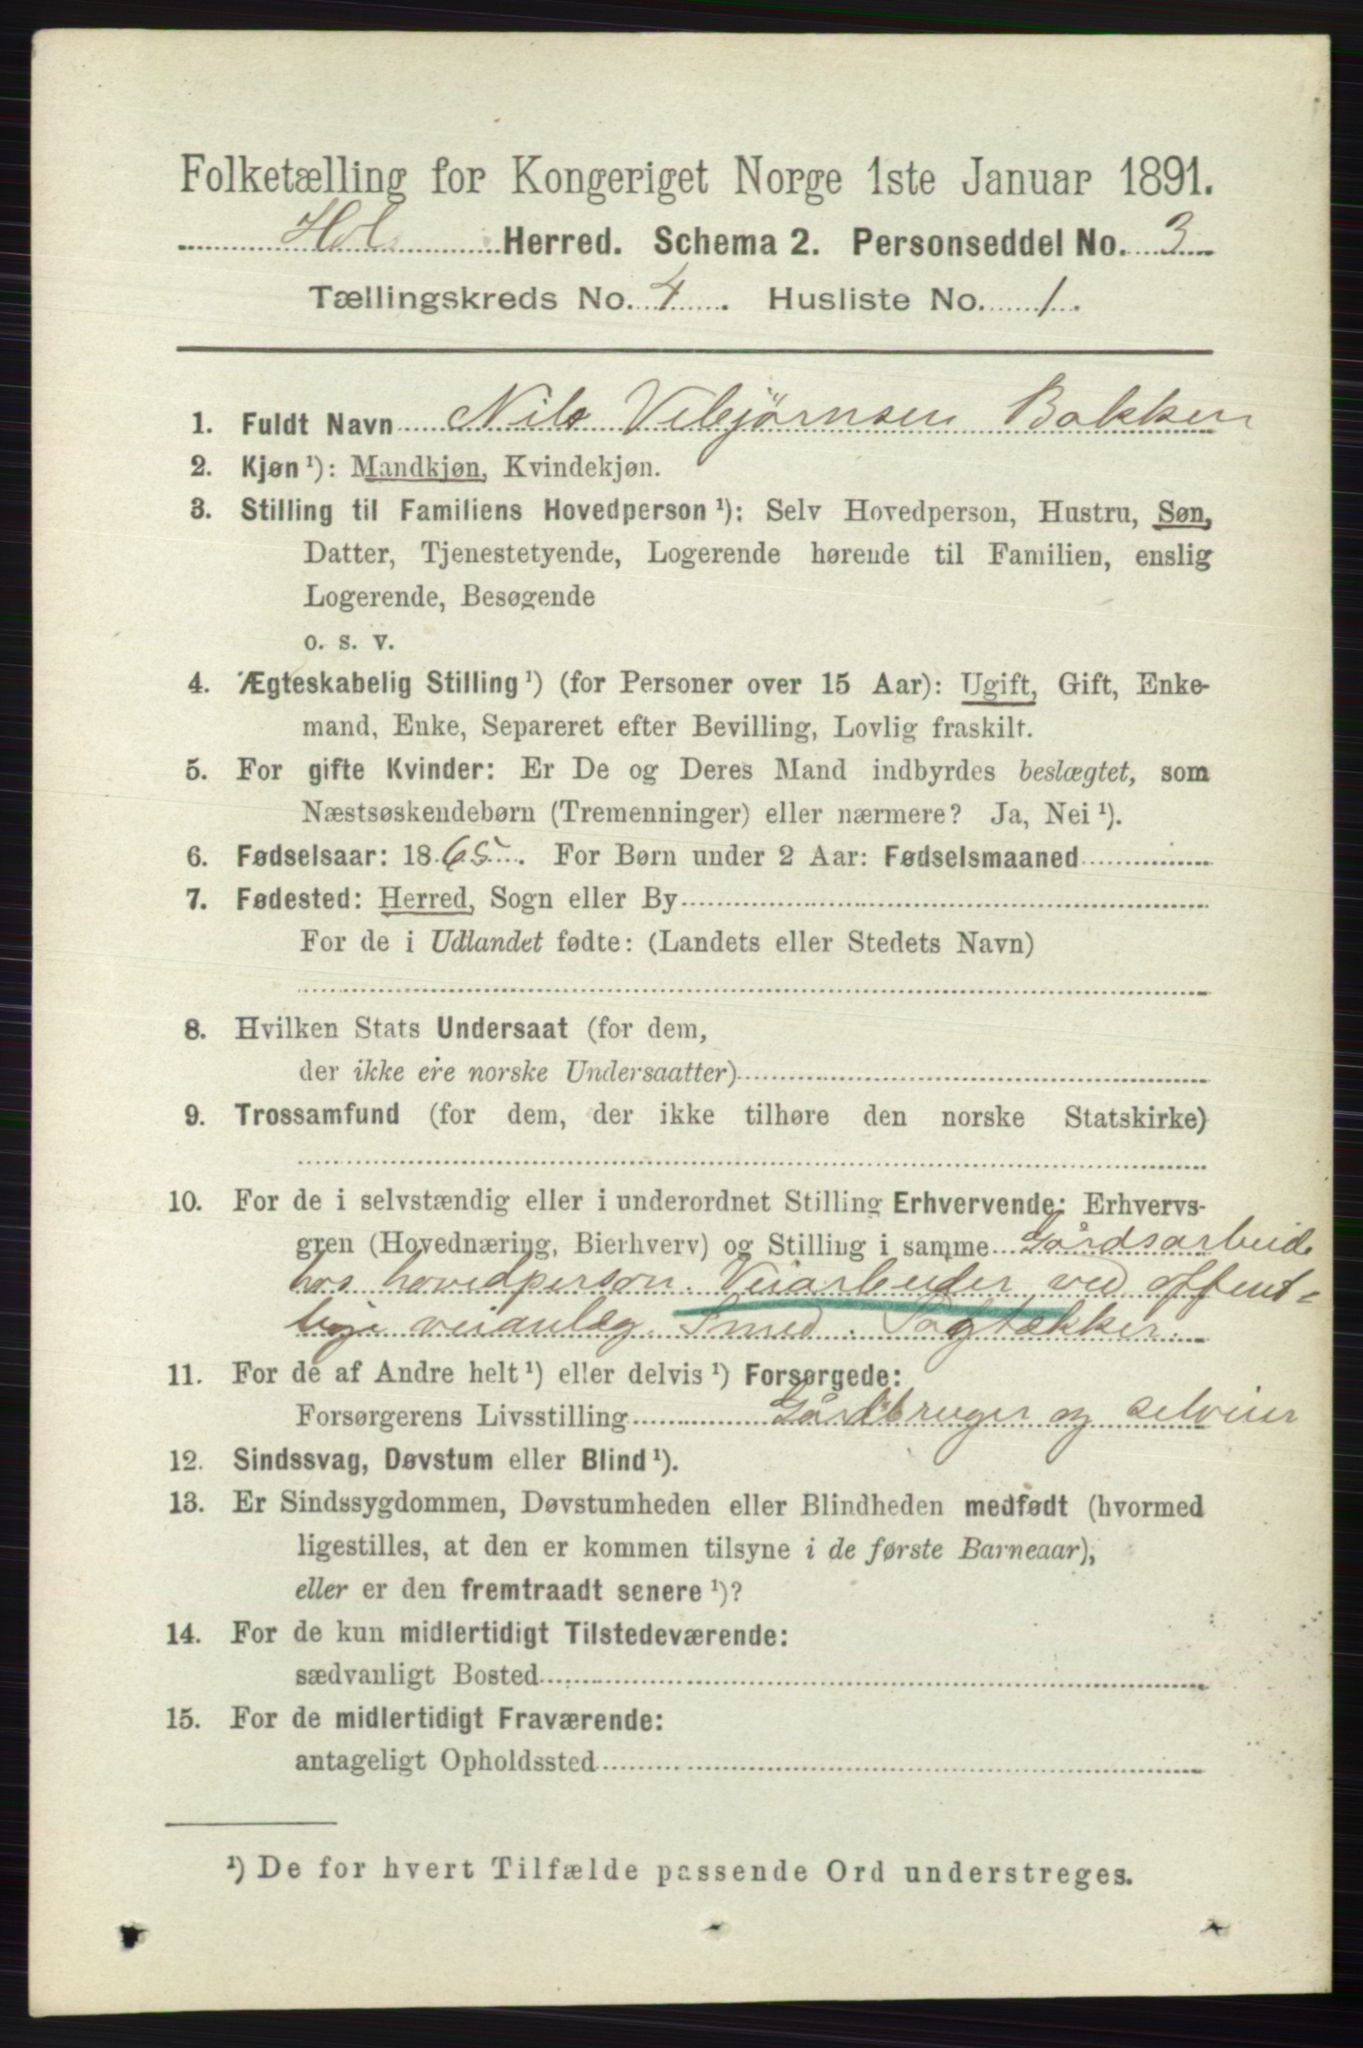 Folketælling for Kongeriget Norge 1ste Januar 1891.
Hol Herred. Schema 2. Personseddel No. 3
Tællingskreds No. 4. Husliste No. 1.
1. Fuldt Navn Nils Vebjørnsen Bakken
2. Kjøn ¹): Mandkjøn, Kvindekjøn.
3. Stilling til Familiens Hovedperson ¹): Selv Hovedperson, Hustru, Søn,
Datter, Tjenestetyende, Logerende hørende til Familien, enslig
Logerende, Besøgende
o. s. v.
4. Ægteskabelig Stilling ¹) (for Personer over 15 Aar): Ugift, Gift, Enke-
mand, Enke, Separeret efter Bevilling, Lovlig fraskilt.
5. For gifte Kvinder: Er De og Deres Mand indbyrdes beslægtet, som
Næstsøskendebørn (Tremenninger) eller nærmere? Ja, Nei ¹).
6. Fødselsaar: 1865. For Børn under 2 Aar: Fødselsmaaned
7. Fødested: Herred, Sogn eller By
For de i Udlandet fødte: (Landets eller Stedets Navn)
8. Hvilken Stats Undersaat (for dem,
der ikke ere norske Undersaatter)
9. Trossamfund (for dem, der ikke tilhøre den norske Statskirke)
10. For de i selvstændig eller i underordnet Stilling Erhvervende: Erhvervs-
gren (Hovednæring, Bierhverv) og Stilling i samme Gårdsarbeide
hos hovedperson. Veiarbeider ved offent=
lige veianlæg. Smed. Tagtækker.
11. For de af Andre helt ¹) eller delvis ¹) Forsørgede:
Forsørgerens Livsstilling Gårdbruger og selveier
12. Sindssvag, Døvstum eller Blind ¹).
13. Er Sindssygdommen, Døvstumheden eller Blindheden medfødt (hvormed
ligestilles, at den er kommen tilsyne i de første Barneaar),
eller er den fremtraadt senere ¹)?
14. For de kun midlertidigt Tilstedeværende:
sædvanligt Bosted
15. For de midlertidigt Fraværende:
antageligt Opholdssted
¹) De for hvert Tilfælde passende Ord understreges.